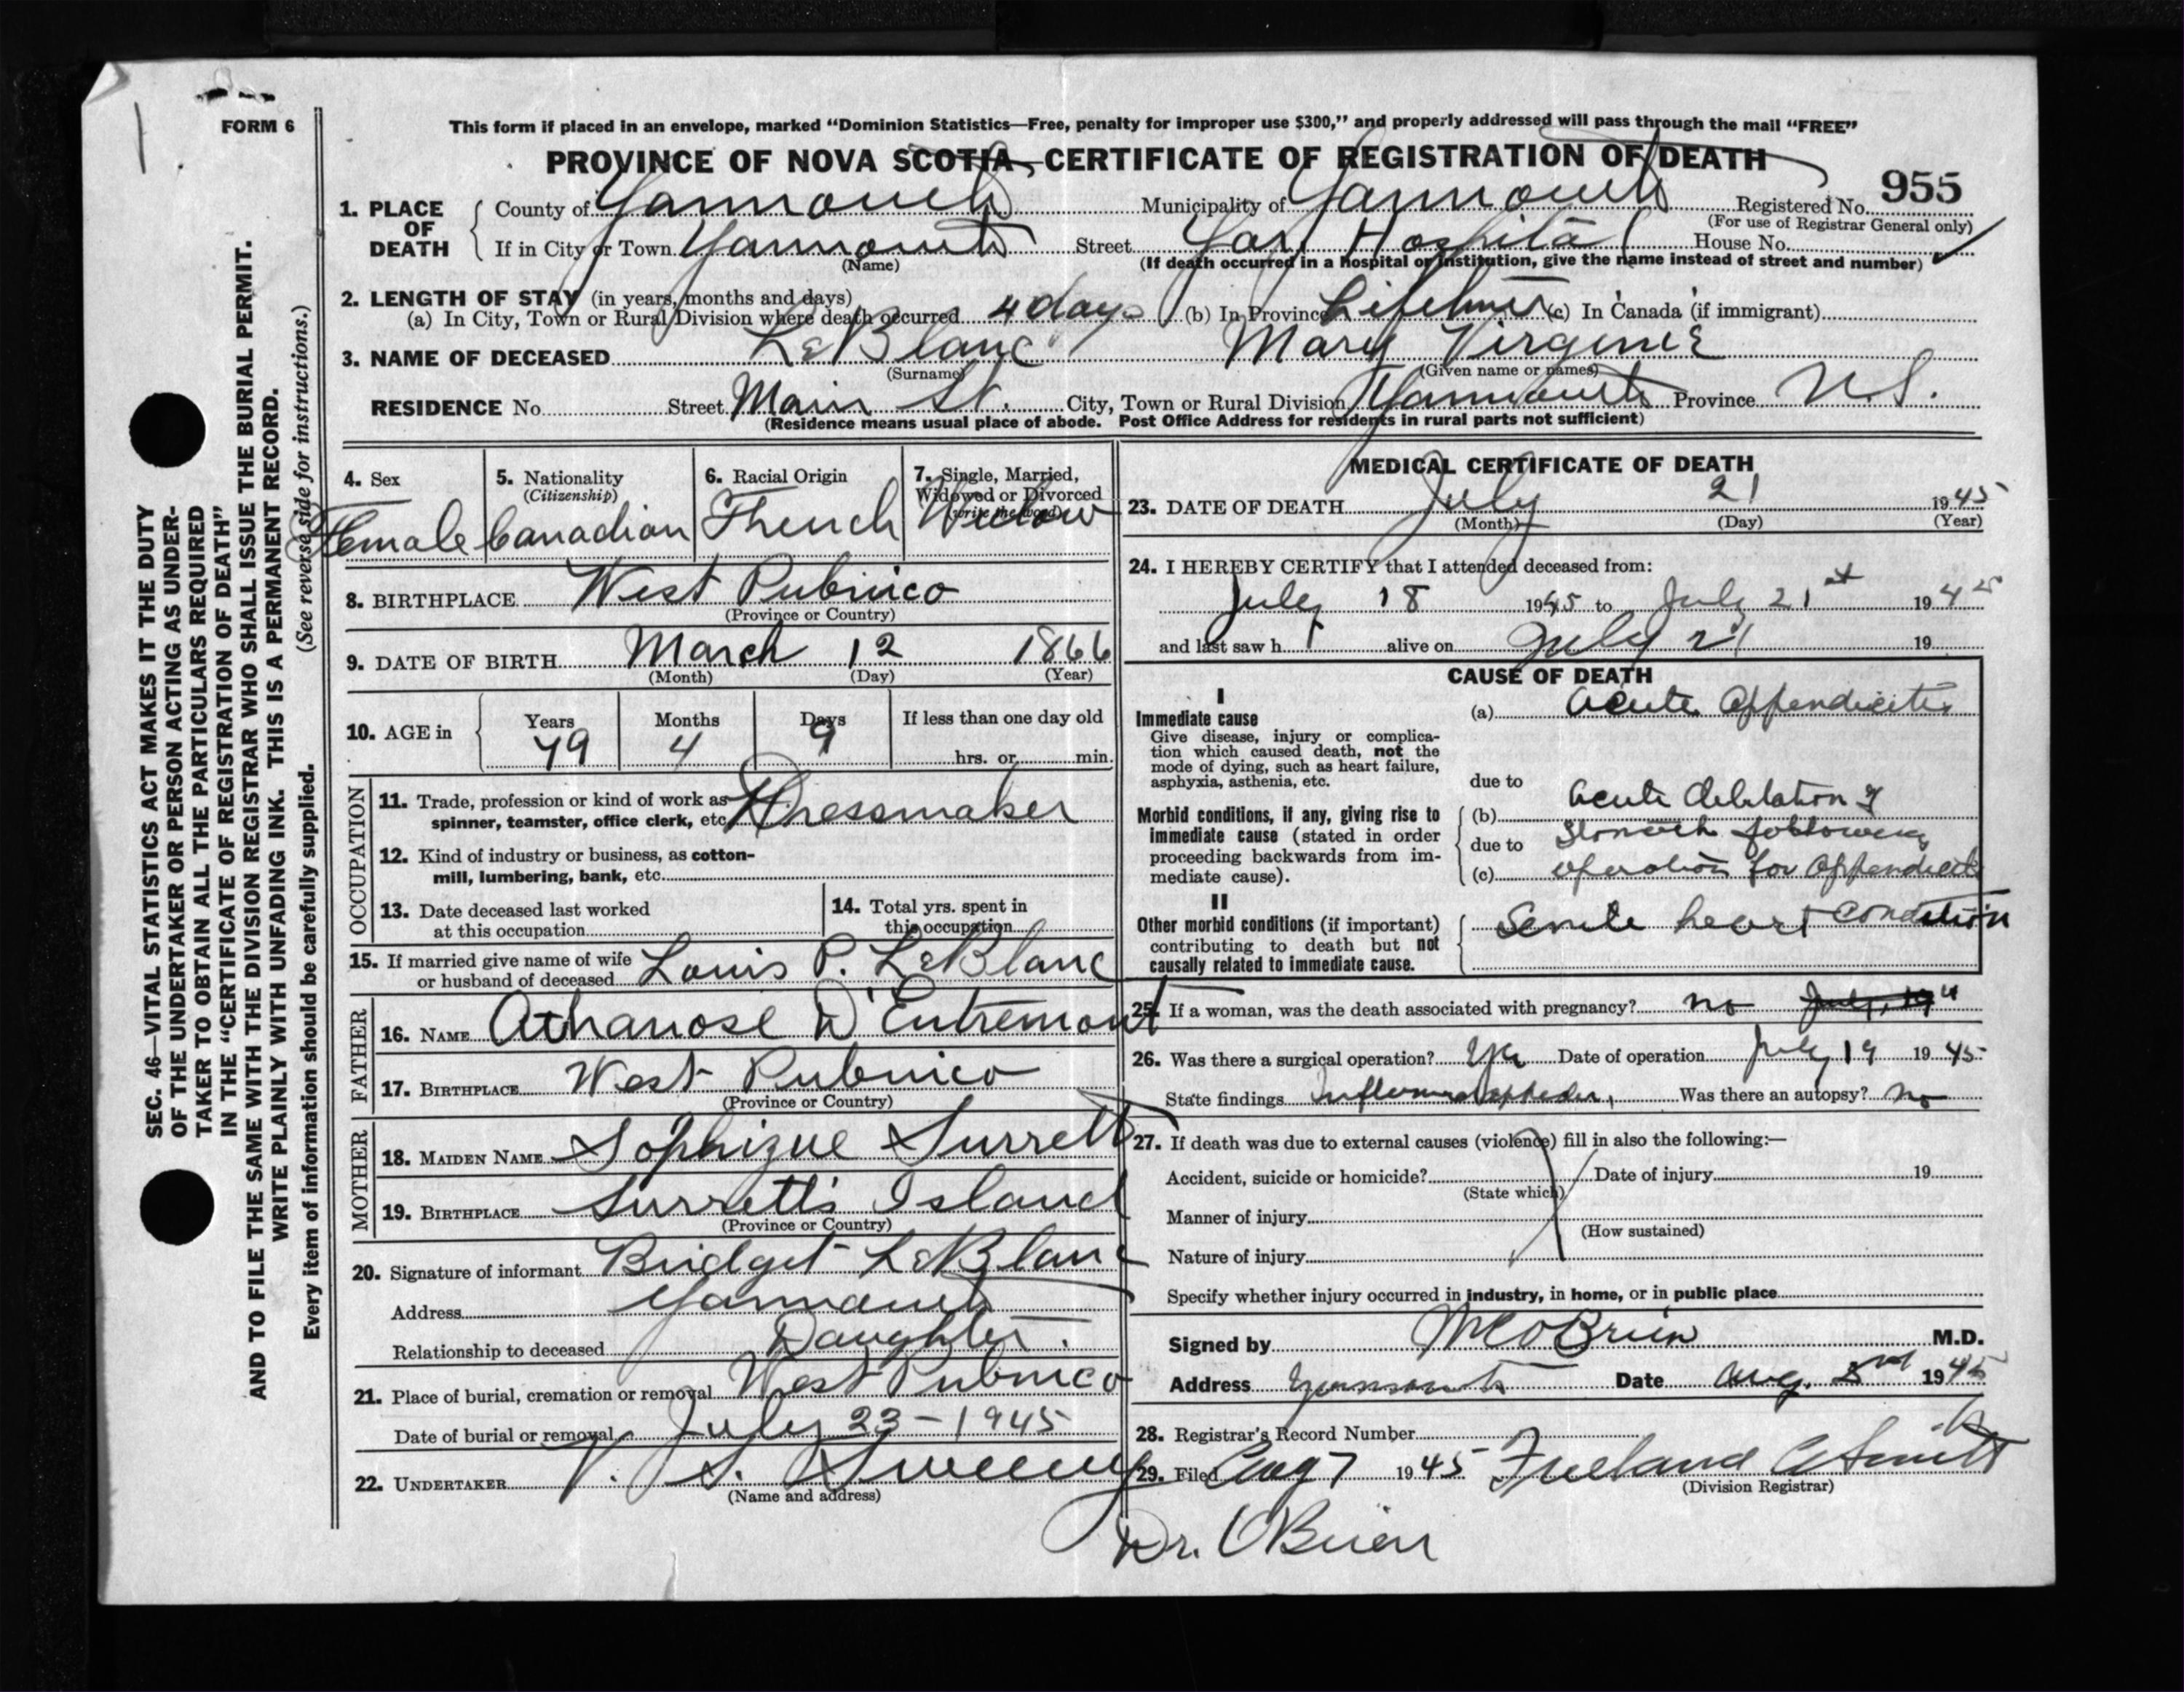 FORM 6
This form if placed in an envelope, marked “Dominion Statistics—Free, penalty for improper use $300,” and properly addressed will pass through the mail “FREE”
PROVINCE OF NOVA SCOTIA, CERTIFICATE OF REGISTRATION OF DEATH
955
1. PLACE OF DEATH
County of Yarmouth Municipality of Yarmouth Registered No.
(For use of Registrar General only)
If in City or Town Yarmouth Street Yar Hospital House No.
(Name)
(If death occurred in a hospital or institution, give the name instead of street and number)
2. LENGTH OF STAY (in years, months and days)
(a) In City, Town or Rural Division where death occurred 4 days (b) In Province Lifetime (c) In Canada (if immigrant)
3. NAME OF DECEASED LeBlanc Mary Virginie
(Surname) (Given name or names)
RESIDENCE No. Street Main St. City, Town or Rural Division Yarmouth Province N.S.
(Residence means usual place of abode. Post Office Address for residents in rural parts not sufficient)
SEC. 46—VITAL STATISTICS ACT MAKES IT THE DUTY
OF THE UNDERTAKER OR PERSON ACTING AS UNDER-
TAKER TO OBTAIN ALL THE PARTICULARS REQUIRED
IN THE “CERTIFICATE OF REGISTRATION OF DEATH”
AND TO FILE THE SAME WITH THE DIVISION REGISTRAR WHO SHALL ISSUE THE BURIAL PERMIT.
WRITE PLAINLY WITH UNFADING INK. THIS IS A PERMANENT RECORD.
Every item of information should be carefully supplied. (See reverse side for instructions.)
4. Sex
Female
5. Nationality
(Citizenship)
Canadian
6. Racial Origin
French
7. Single, Married,
Widowed or Divorced
(write the word)
Widow
8. BIRTHPLACE West Pubnico
(Province or Country)
9. DATE OF BIRTH March 12 1866
(Month) (Day) (Year)
10. AGE in
Years Months Days If less than one day old
79 4 9 hrs. or min.
OCCUPATION
11. Trade, profession or kind of work as
spinner, teamster, office clerk, etc. Dressmaker
12. Kind of industry or business, as cotton-
mill, lumbering, bank, etc.
13. Date deceased last worked
at this occupation
14. Total yrs. spent in
this occupation
15. If married give name of wife
or husband of deceased Louis P. LeBlanc
FATHER
16. NAME Athanose D'Entremont
17. BIRTHPLACE West Pubnico
(Province or Country)
MOTHER
18. MAIDEN NAME Sophique Surrett
19. BIRTHPLACE Surrett's Island
(Province or Country)
20. Signature of informant Bridget LeBlanc
Address Yarmouth
Relationship to deceased Daughter.
21. Place of burial, cremation or removal West Pubnico
Date of burial or removal July 23-1945
22. UNDERTAKER V. S. Sweeny
(Name and address)
MEDICAL CERTIFICATE OF DEATH
23. DATE OF DEATH July 21 1945
(Month) (Day) (Year)
24. I HEREBY CERTIFY that I attended deceased from:
July 18 1945 to July 21st 1945
and last saw h r alive on July 21 19
CAUSE OF DEATH
I
Immediate cause
Give disease, injury or complica-
tion which caused death, not the
mode of dying, such as heart failure,
asphyxia, asthenia, etc.
(a) Acute Appendicitis
due to
Morbid conditions, if any, giving rise to
immediate cause (stated in order
proceeding backwards from im-
mediate cause).
(b) Acute dilatation of
due to stomach following
(c) operation for Appendicitis
II
Other morbid conditions (if important)
contributing to death but not
causally related to immediate cause.
Senile heart condition
25. If a woman, was the death associated with pregnancy? no
26. Was there a surgical operation? Yes Date of operation July 19 1945
State findings Was there an autopsy? no
27. If death was due to external causes (violence) fill in also the following:—
Accident, suicide or homicide? Date of injury 19
(State which)
Manner of injury
(How sustained)
Nature of injury
Specify whether injury occurred in industry, in home, or in public place
Signed by M C O'Brien M.D.
Address Yarmouth Date Aug. 1945
28. Registrar's Record Number
29. Filed Aug 7 1945 Freeland A Smith
(Division Registrar)
Dr. O'Brien